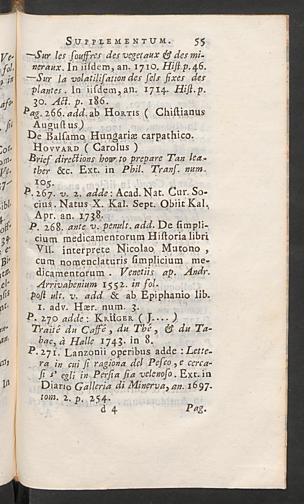 SUPPLEMENTUM. 55
—Sur les souffres des vegetaux & des mi-
neraux. In iisdem, an. 1710. Hist. p. 46.
—Sur la volatilisation des sels fixes des
plantes. In iisdem, an. 1714. Hist. p.
30. Act. p. 186.
Pag. 266. add. ab HORTIS ( Chistianus
Augustus)
De Balsamo Hungariæ carpathico.
HOVVARD ( Carolus )
Brief directions how to prepare Tan lea-
ther &c. Ext. in Phil. Trans. num.
105.
P. 267. v. 2. adde: Acad. Nat. Cur. So-
cius. Natus X. Kal. Sept. Obiit Kal.
Apr. an. 1738.
P. 268. ante v. penult. add. De simpli-
cium medicamentorum Historia libri
VII. interprete Nicolao Mutono,
cum nomenclaturis simplicium me-
dicamentorum. Venetiis ap. Andr.
Arrivabenium 1552. in fol.
post ult. v. add & ab Epiphanio lib.
1. adv. Hær. num. 3.
P. 270 adde: KRÜGER ( J.... )
Traité du Caffé, du Thé, & du Ta-
bac, à Halle 1743. in 8.
P. 271. Lanzonii operibus adde: Lette-
ra in cui si ragiona del Pesco, e cerca-
si s' egli in Persia sia velenoso. Ext. in
Diario Galleria di Minerva, an. 1697.
tom. 2. p. 254.
d 4 Pag.